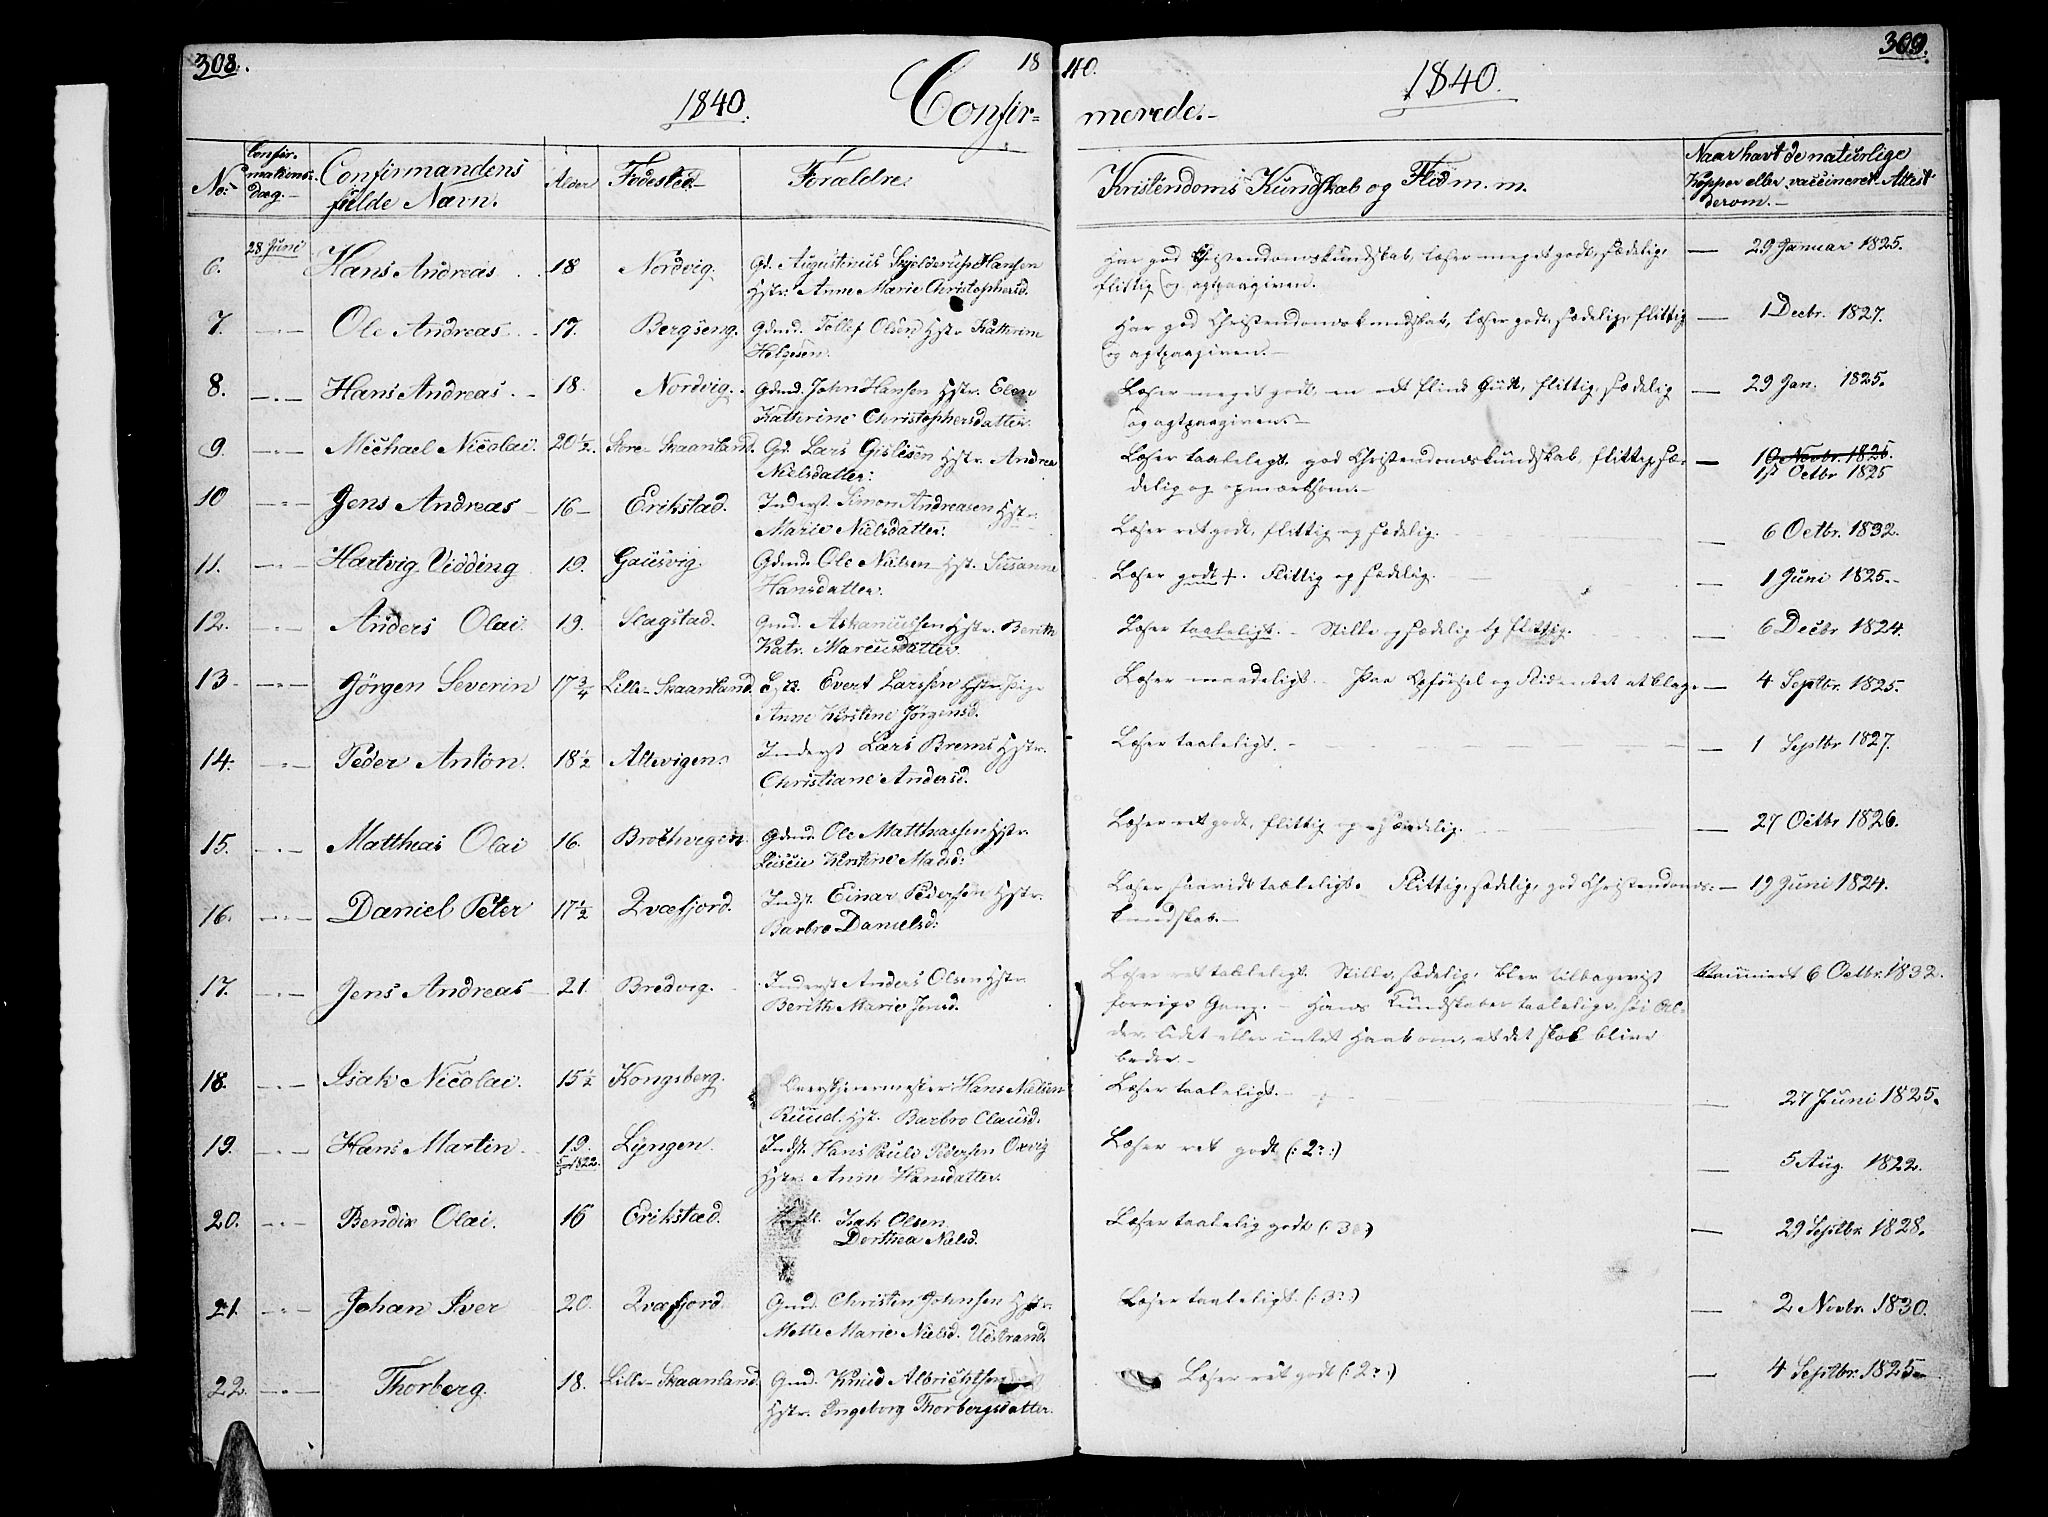 308.
18
40.
309.
1840.
Confir-
merede.-
1840.
No:
Confir-
mations-
dag.-
Confirmandens
fulde Navn.
Alder
Fødested-
Forældre.
Kristendoms Kundskab og Flid m. m.
Naar havt de naturlige
Kopper eller vaccineret. Attest
derom.-
6. 28 Juni Hans Andreas. 18 Nordvig. Gd. Augustinus Hansen
Hstr. Anne Marie Christophersd.
Har god Christendomskundskab, læser meget godt, sædelig,
flittig og agtpaagiven.
— 29 Januar 1825.
7. —"— Ole Andreas. 17. Bergseng. Gdmd. Tollef Olsen. Hstr. Kathrine
Helgesen.
Har god Christendomskundskab, læser godt, sædelig, flittig
og agtpaagiven.-
— 1 Decbr. 1827.
8. —"— Hans Andreas. 18. Nordvig. Gdmd. John Hansen Hstr. Elen
Kathrine Christophersdatter.
Læser meget godt, en flink Gut, flittig, sædelig
og agtpaagiven.-
— 29 Jan. 1825.
9. —"— Michael Nicolai. 20 1/2. Store-Skaanland. Gd. Lars Gislesen Hstr. Andrea
Nielsdatter.
Læser taaleligt. god Christendomskundskab, flittig, sæ-
delig og opmærksom.-
— 10 Novbr. 1826.
Octbr 1825
10 —"— Jens Andreas 16- Erikstad. Inderst. Simon Andreasen Hstr.
Marie Nielsdatter.
Læser ret godt, flittig og sædelig.
— 6 Octbr. 1832.
11. —"— Hartvig Vidding 19. Gausvig. Gdmd. Ole Nielsen Hst. Susanne
Hansdatter.
Læser godt +. Flittig og sædelig.
— 1 Juni 1825.-
12. —"— Anders Olai. 19. Slagstad. Gmd. Askanussen Hstr. Berith
Katr. Marcusdatter.
Læser taaleligt. - Stille og sædelig og flittig.
— 6 Decbr 1824.
13 —"— Jörgen Severin 17 3/4 Lille-Skaanland. Evert Larssen Pige
Anne Kirstine Jörgensd.
Læser maadeligt. Paa Opførsel og Flid intet at klage
— 4 Septbr. 1825.
14. —"— Peder Anton. 18 1/2 Altevigen. Inderst Lars Brems Hstr.
Christiane Andersd.
Læser taaleligt.-
— 1 Septbr 1827.
15. —"— Matthias Olai 16. Gdmd. Ole Matthiassen Hstr.
Kirstine Madsd.
Læser ret godt, flittig og sædelig.
— 27 Octbr 1826.
16. —"— Daniel Peter 17 1/2 Qvæfjord. Indst. Einar Pedersen Hstr.
Barbro Danielsd.
Læser saavidt taaleligt. Flittig, sædelig, god Christendoms-
kundskab.-
— 19 Juni 1824.
17. —"— Jens Andreas 21. Bredvig. Inderst Anders Olsen Hstr.
Berith Marie Jensd.
Læser ret taaleligt. Stille, sædelig, blev tilbageviist
forrige Gang. - Hans Kundskaber taalelige, høi Al-
der, lidet eller intet Haab om, at det skal blive
bedre.-
Vaccineret 6 Octbr. 1832.
18. —"— Isak Nicolai. 15 1/2 Kongsberg. Hans Nielsen
Ruud. Hst. Barbro Clausd.
Læser taaleligt.-
— 27 Juni 1825.
19. —"— Hans Martin. 19. 5/5 1822. Lyngen. Indst. Hans Paule Pedersen Oxvig
Hstr. Anne Hansdatter.
Læser ret godt (: 2 :)
— 5 Aug. 1822.
20. —"— Bendix Olai. 16 Erikstad. Isak Olsen
Dorthea Nielsd.
Læser taalelig godt (: 3 :)
— 29 Septbr. 1828.
21. —"— Johan Iver 20. Qvæfjord. Gmd. Christen Johnsen Hstr.
Mette Marie Nielsd. Uestrand.
Læser taaleligt. (: 3 :)
— 2 Novbr. 1830.
22. —"— Thorberg. 18. Lille-Skaanland Gmd. Knud Albrichtsen
Hstr. Ingeborg Thorbergsdatter.
Læser ret godt (: 2 :)
— 4 Septbr. 1825